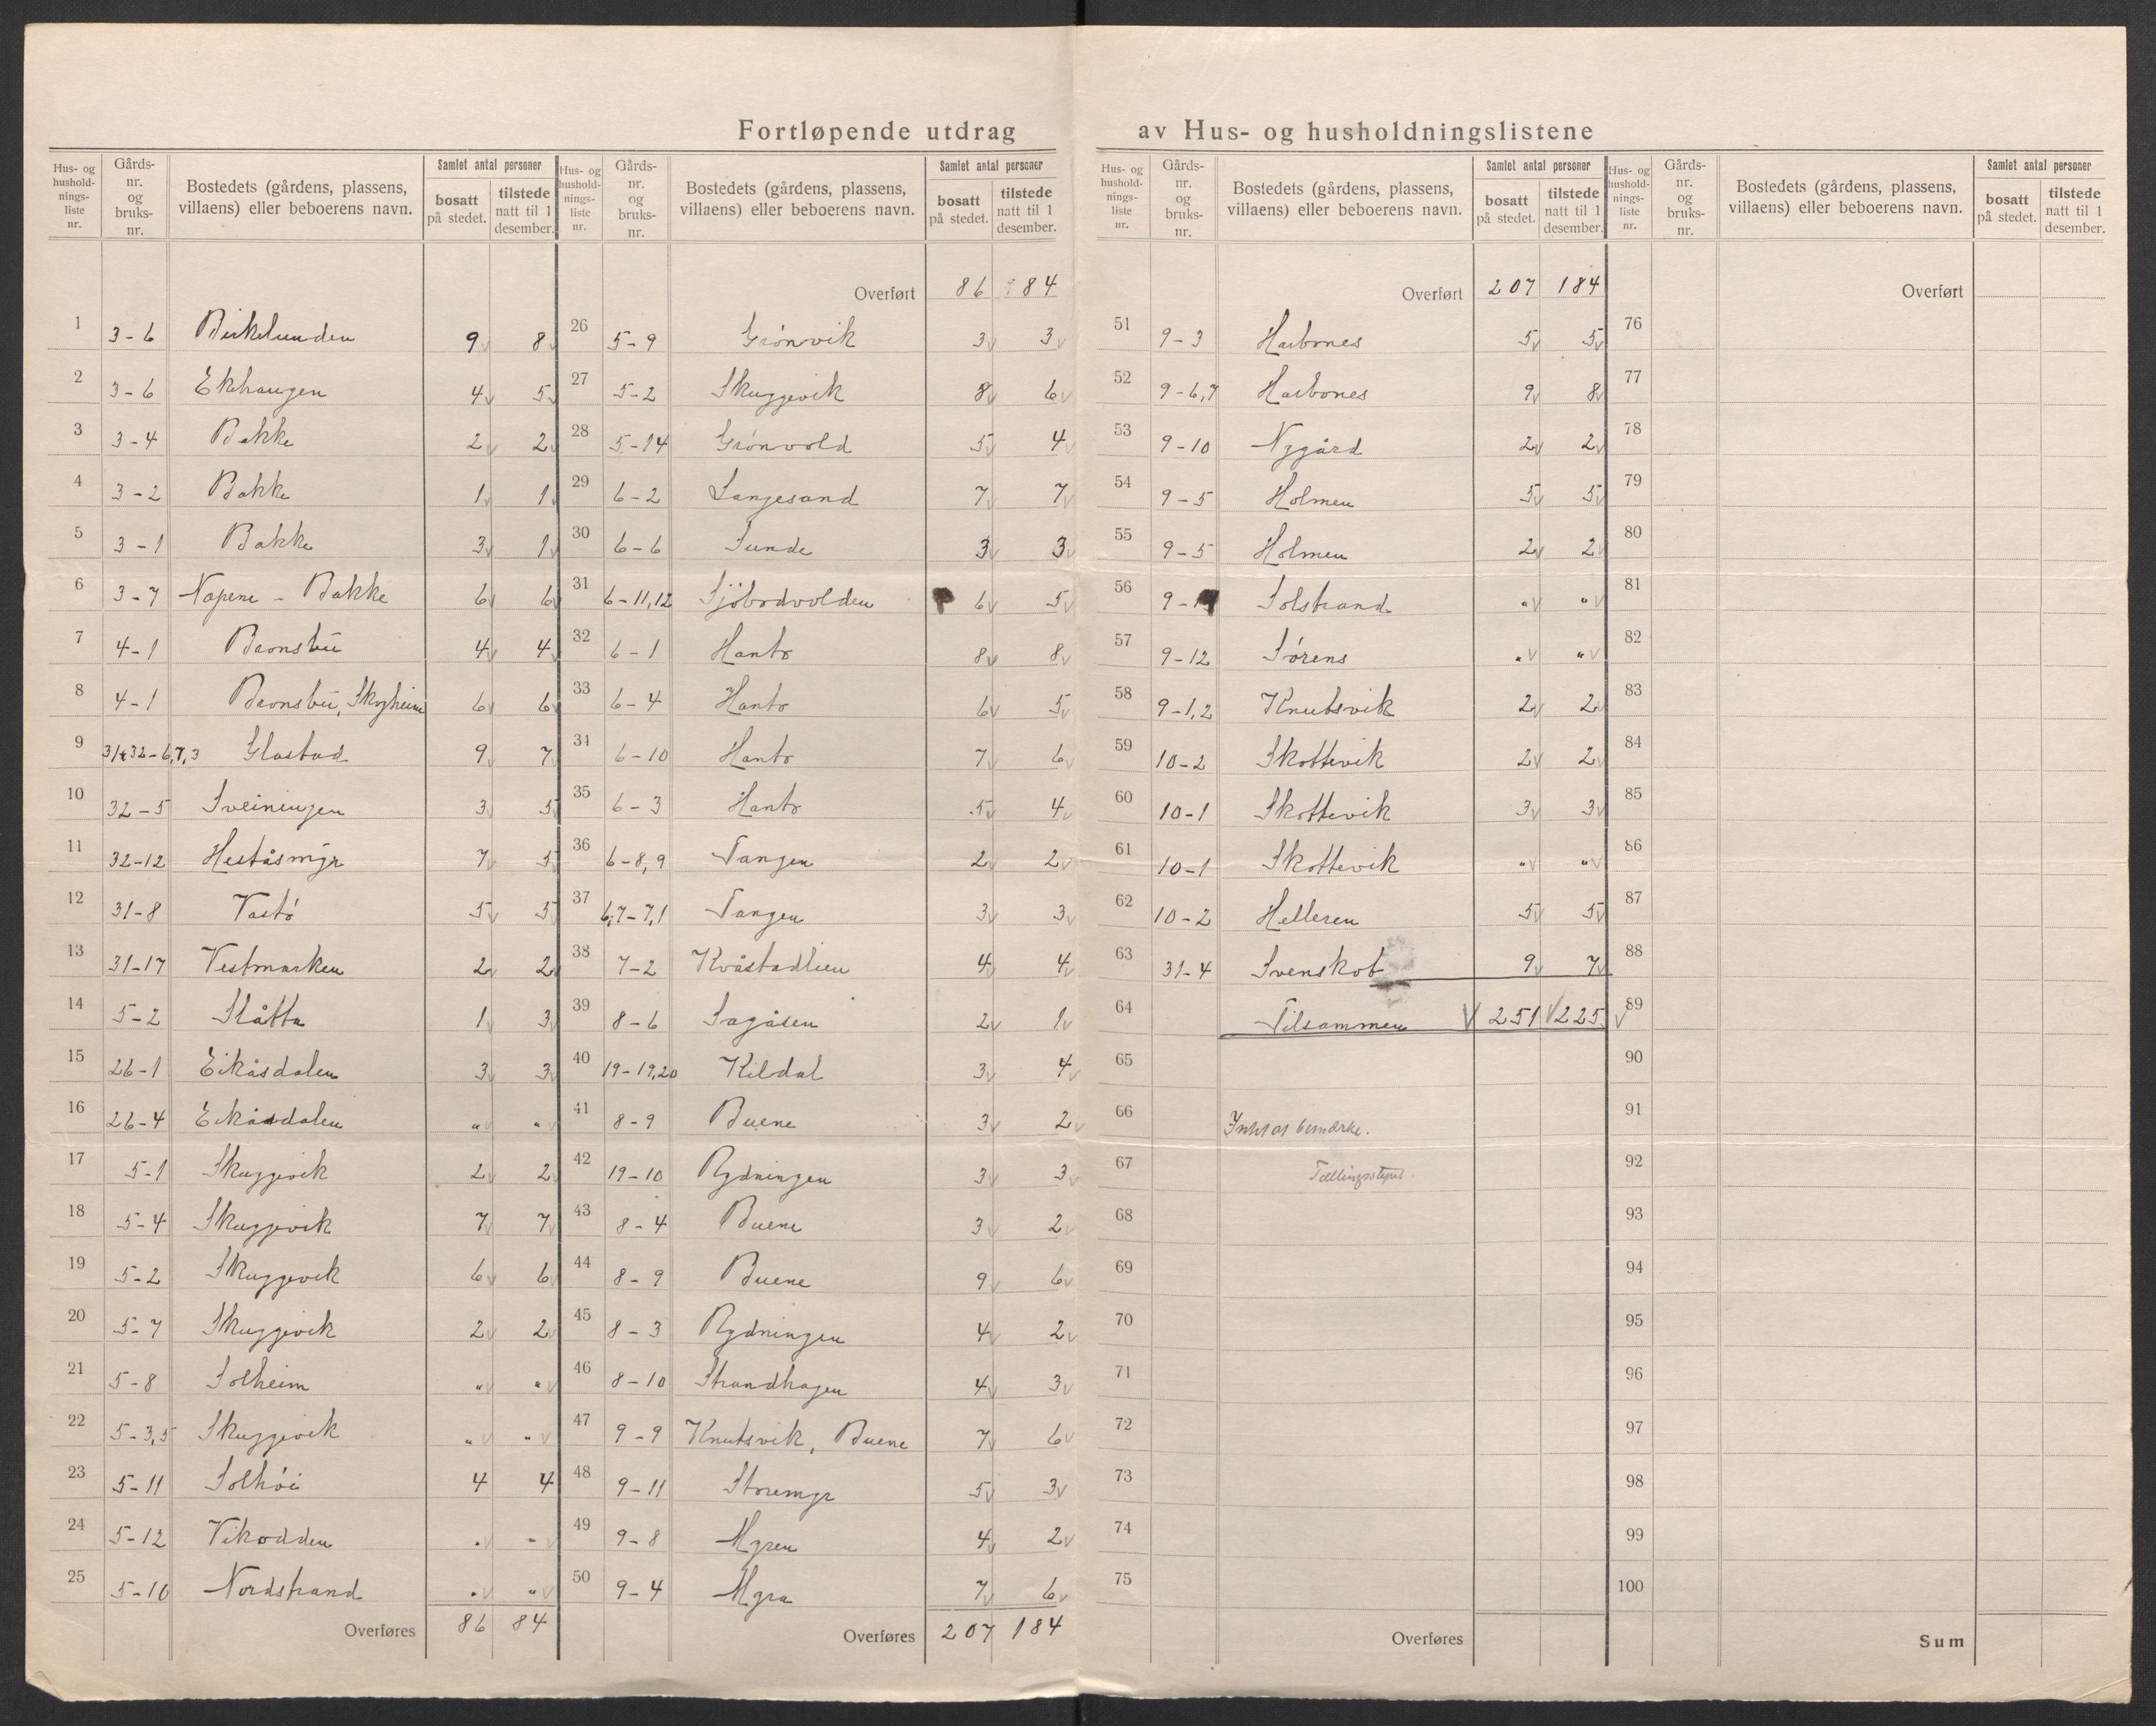 Fortløpende utdrag av Hus- og husholdningslistene
Hus- og husholdnings-liste nr. Gårds-nr. og bruks-nr. Bostedets (gårdens, plassens, villaens) eller beboerens navn. Samlet antal personer bosatt på stedet. tilstede natt til 1 desember.
1 3-6 Birkelunden 9 8
2 3-6 Ekhaugen 4 5
3 3-4 Bakke 2 2
4 3-2 Bakke 1 1
5 3-1 Bakke 3 1
6 3-7 Napene - Bakke 6 6
7 4-1 Bronsbu 4 4
8 4-1 Bronsbu, Skogheim 6 6
9 31&32-6,7,3 Glastad 9 7
10 32-5 Sveinungen 3 5
11 32-12 Heståsmyr 7 5
12 31-8 Vastø 5 5
13 31-17 Vestmarken 2 2
14 5-2 Slåtta 1 3
15 26-1 Eikåsdalen 3 3
16 26-4 Eikåsdalen " "
17 5-1 Skuggevik 2 2
18 5-4 Skuggevik 7 7
19 5-2 Skuggevik 6 6
20 5-7 Skuggevik 2 2
21 5-8 Solheim " "
22 5-3,5 Skuggevik " "
23 5-11 Solhøi 4 4
24 5-12 Vikodden " "
25 5-10 Nordstrand " "
Overføres 86 84
Hus- og husholdnings-liste nr. Gårds-nr. og bruks-nr. Bostedets (gårdens, plassens, villaens) eller beboerens navn. Samlet antal personer bosatt på stedet. tilstede natt til 1 desember.
Overført 86 84
26 5-9 Grønvik 3 3
27 5-2 Skuggevik 8 6
28 5-14 Grønvold 5 4
29 6-2 Langesand 7 7
30 6-6 Sunde 3 3
31 6-11,12 Sjöbodvolden 6 5
32 6-1 Hantø 8 8
33 6-4 Hantø 6 5
34 6-10 Hantø 7 6
35 6-3 Hantø 5 4
36 6-8,9 Tangen 2 2
37 6,7-7,1 Tangen 3 3
38 7-2 Kvåstadlien 4 4
39 8-6 Sagåsen 2 1
40 19-19,20 Kildal 3 4
41 8-9 Buene 3 2
42 19-10 Rydningen 3 3
43 8-4 Buene 3 2
44 8-9 Buene 9 6
45 8-3 Rydningen 4 2
46 8-10 Strandhagen 4 3
47 9-9 Knutsvik, Buene 7 6
48 9-11 Storemyr 5 3
49 9-8 Myren 4 2
50 9-4 Myra 7 6
Overføres 207 184
Hus- og husholdnings-liste nr. Gårds-nr. og bruks-nr. Bostedets (gårdens, plassens, villaens) eller beboerens navn. Samlet antal personer bosatt på stedet. tilstede natt til 1 desember.
Overført 207 184
51 9-3 Harbones 5 5
52 9-6,7 Harbones 9 8
53 9-10 Nygård 2 2
54 9-5 Holmen 5 5
55 9-5 Holmen 2 2
56 9-1 Solstrand " "
57 9-12 Sørens " "
58 9-1,2 Knutsvik 2 2
59 10-2 Skottevik 2 2
60 10-1 Skottevik 3 3
61 10-1 Skottevik " "
62 10-2 Helleren 5 5
63 31-4 Svenskot 9 7
64 Tilsammen 251 225
65
66 Intet at bemærke.
67 Tællingsstyret.
68
69
70
71
72
73
74
75
Overføres
Hus- og husholdnings-liste nr. Gårds-nr. og bruks-nr. Bostedets (gårdens, plassens, villaens) eller beboerens navn. Samlet antal personer bosatt på stedet. tilstede natt til 1 desember.
Overført
76
77
78
79
80
81
82
83
84
85
86
87
88
89
90
91
92
93
94
95
96
97
98
99
100
Sum